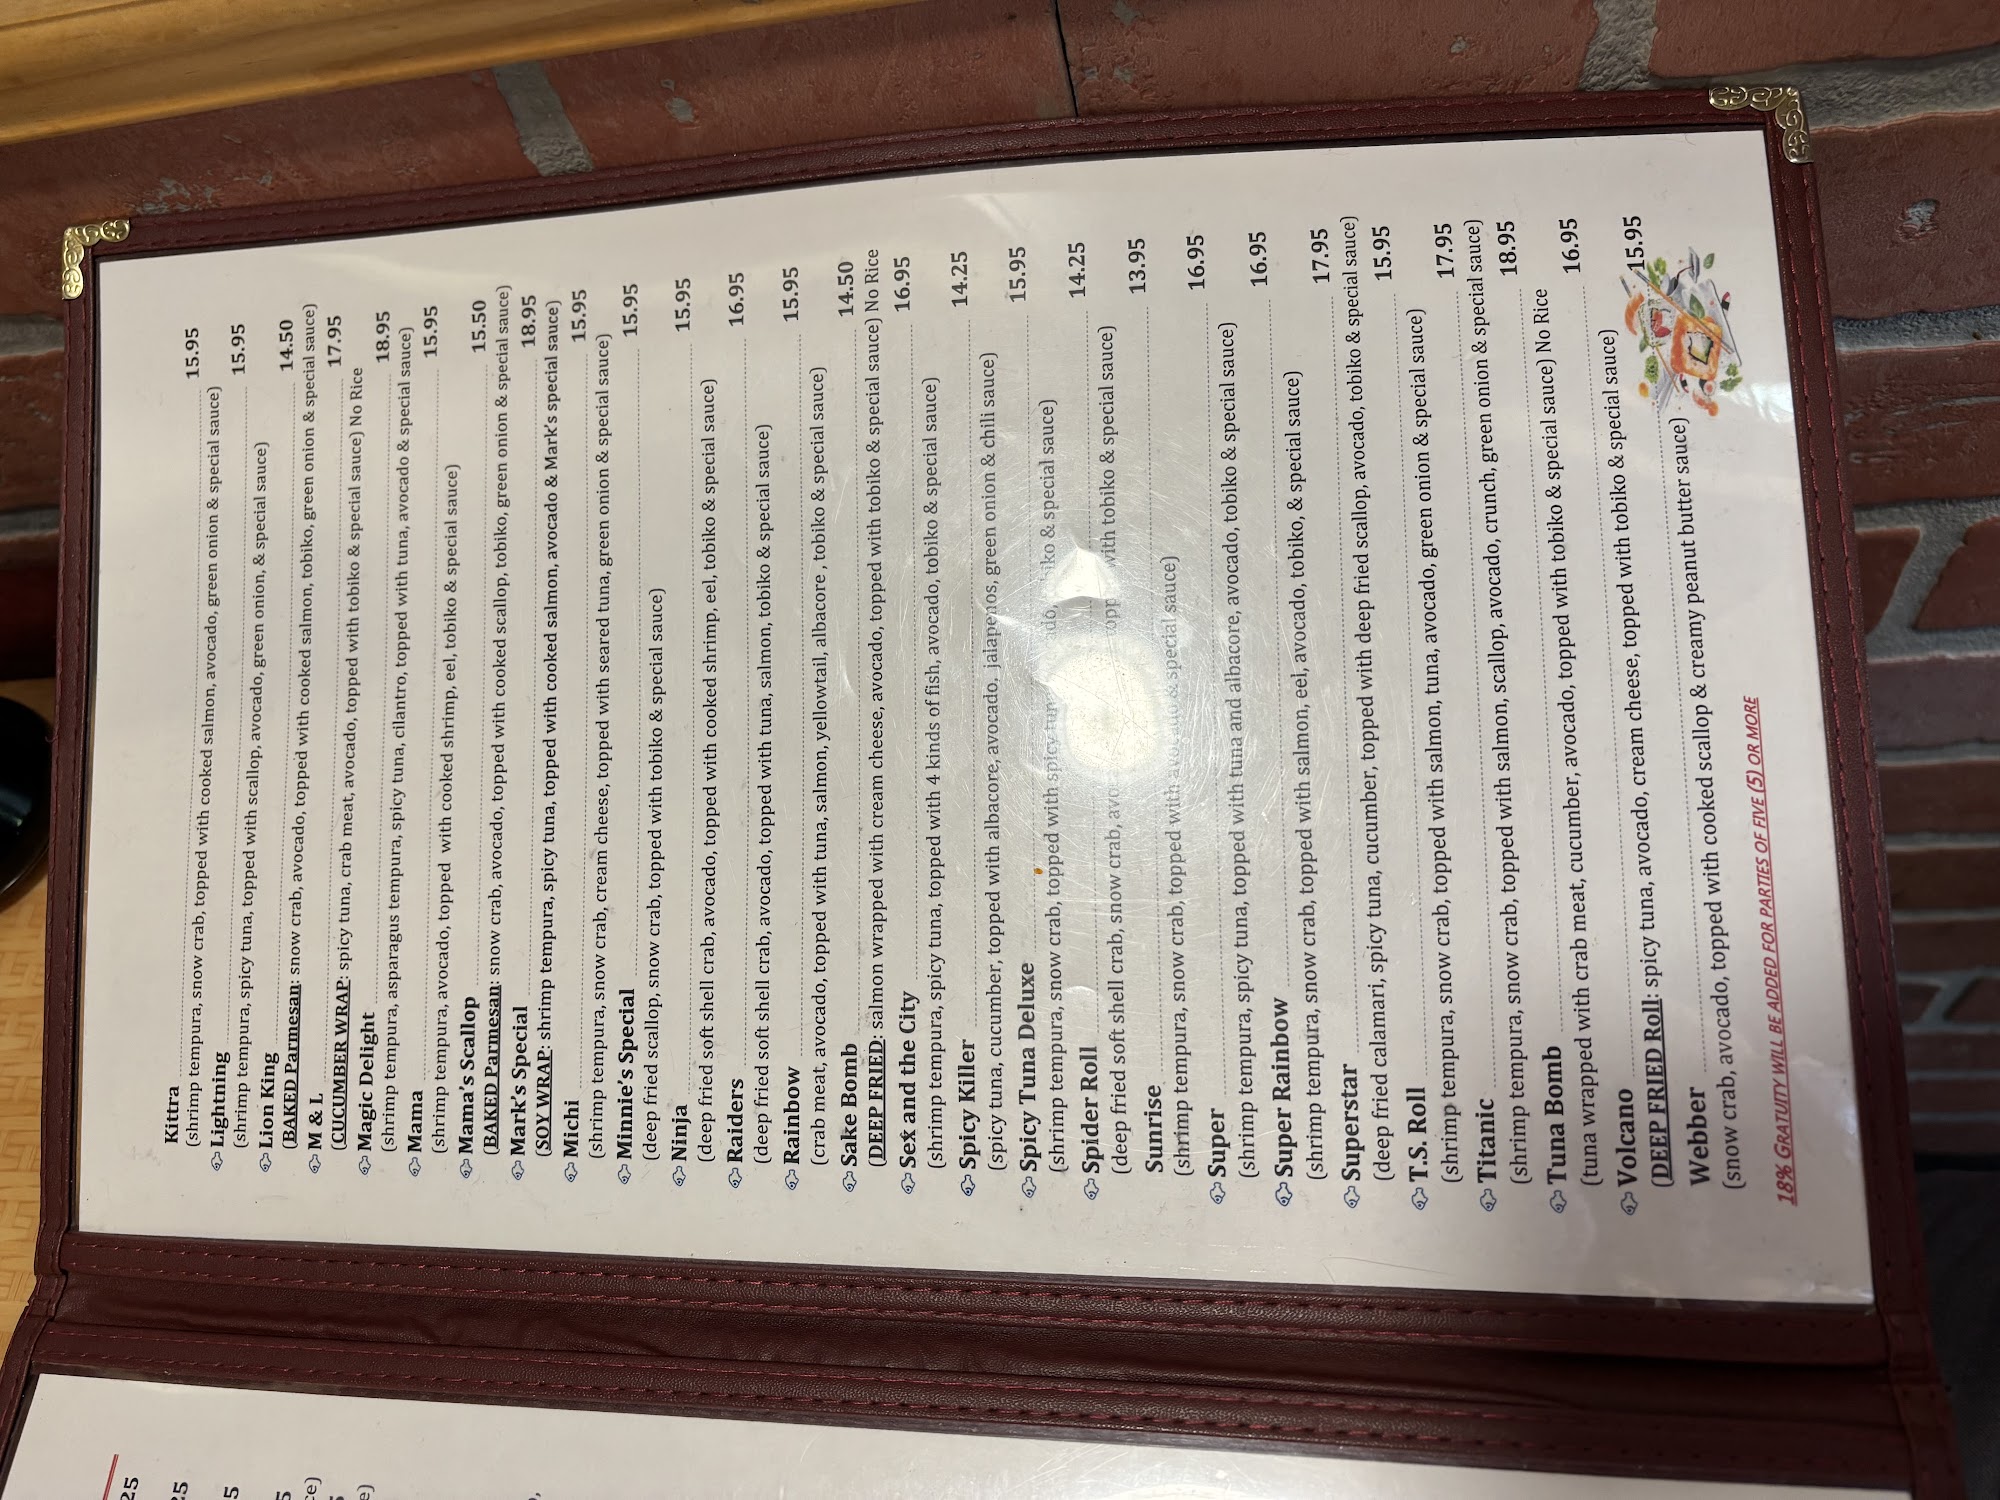 Kittra 15.95
(shrimp tempura, snow crab, topped with cooked salmon, avocado, green onion & special sauce)
Lightning 15.95
(shrimp tempura, spicy tuna, topped with scallop, avocado, green onion, & special sauce)
Lion King 14.50
(BAKED Parmesan: snow crab, avocado, topped with cooked salmon, tobiko, green onion & special sauce)
M & L 17.95
(CUCUMBER WRAP: spicy tuna, crab meat, avocado, topped with tobiko & special sauce) No Rice
Magic Delight 18.95
(shrimp tempura, asparagus tempura, spicy tuna, cilantro, topped with tuna, avocado & special sauce)
Mama 15.95
(shrimp tempura, avocado, topped with cooked shrimp, eel, tobiko & special sauce)
Mama's Scallop 15.50
(BAKED Parmesan: snow crab, avocado, topped with cooked scallop, tobiko, green onion & special sauce)
Mark's Special 18.95
(SOY WRAP: shrimp tempura, spicy tuna, topped with cooked salmon, avocado & Mark's special sauce)
Michi 15.95
(shrimp tempura, snow crab, cream cheese, topped with seared tuna, green onion & special sauce)
Minnie's Special 15.95
(deep fried scallop, snow crab, topped with tobiko & special sauce)
Ninja 15.95
(deep fried soft shell crab, avocado, topped with cooked shrimp, eel, tobiko & special sauce)
Raiders 16.95
(deep fried soft shell crab, avocado, topped with tuna, salmon, tobiko & special sauce)
Rainbow 15.95
(crab meat, avocado, topped with tuna, salmon, yellowtail, albacore , tobiko & special sauce)
Sake Bomb 14.50
(DEEP FRIED: salmon wrapped with cream cheese, avocado, topped with tobiko & special sauce) No Rice
Sex and the City 16.95
(shrimp tempura, spicy tuna, topped with 4 kinds of fish, avocado, tobiko & special sauce)
Spicy Killer 14.25
(spicy tuna, cucumber, topped with albacore, avocado, jalapenos, green onion & chili sauce)
Spicy Tuna Deluxe 15.95
(shrimp tempura, snow crab, topped with spicy tuna, & special sauce)
Spider Roll 14.25
(deep fried soft shell crab, snow crab, with tobiko & special sauce)
Sunrise 13.95
(shrimp tempura, snow crab, topped with avocado & special sauce)
Super 16.95
(shrimp tempura, spicy tuna, topped with tuna and albacore, avocado, tobiko & special sauce)
Super Rainbow 16.95
(shrimp tempura, snow crab, topped with salmon, eel, avocado, tobiko, & special sauce)
Superstar 17.95
(deep fried calamari, spicy tuna, cucumber, topped with deep fried scallop, avocado, tobiko & special sauce)
T.S. Roll 15.95
(shrimp tempura, snow crab, topped with salmon, tuna, avocado, green onion & special sauce)
Titanic 17.95
(shrimp tempura, snow crab, topped with salmon, scallop, avocado, crunch, green onion & special sauce)
Tuna Bomb 18.95
(tuna wrapped with crab meat, cucumber, avocado, topped with tobiko & special sauce) No Rice
Volcano 16.95
(DEEP FRIED Roll: spicy tuna, avocado, cream cheese, topped with tobiko & special sauce)
Webber 15.95
(snow crab, avocado, topped with cooked scallop & creamy peanut butter sauce)
18% GRATUITY WILL BE ADDED FOR PARTIES OF FIVE (5) OR MORE